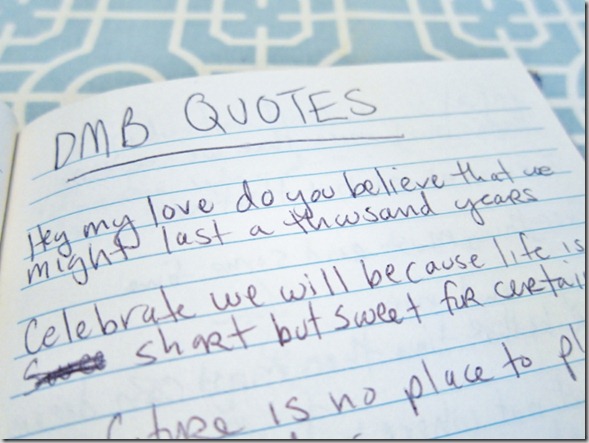 DMB QUOTES
Hey my love do you believe that we
might last a thousand years
Celebrate we will because life is
short but sweet for certain
is no place to